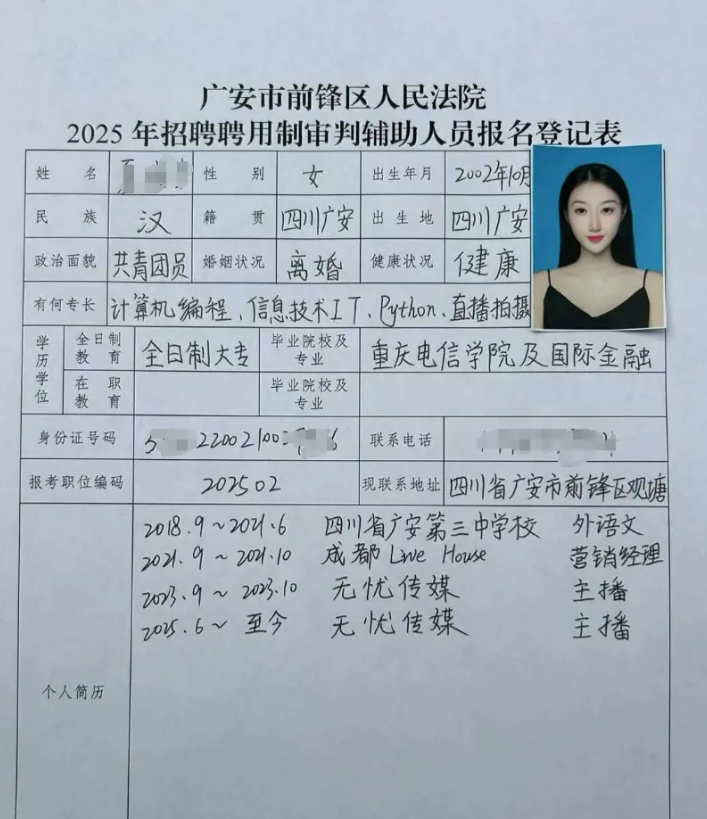 广安市前锋区人民法院
2025 年招聘聘用制审判辅助人员报名登记表
姓 名 性 别 女 出生年月 2002年10月
民 族 汉 籍 贯 四川广安 出 生 地 四川广安
政治面貌 共青团员 婚姻状况 离婚 健康状况 健康
有何专长 计算机编程、信息技术IT、Python、直播拍摄
学历学位 全日制教育 全日制大专 毕业院校及专业 重庆电信学院及国际金融
在职教育 毕业院校及专业
身份证号码 5 22002100 6 联系电话
报考职位编码 202502 现联系地址 四川省广安市前锋区观塘
2018.9～2021.6 四川省广安第三中学校 外语文
2021.9～2021.10 成都 Live House 营销经理
2023.9～2023.10 无忧传媒 主播
2025.6～至今 无忧传媒 主播
个人简历